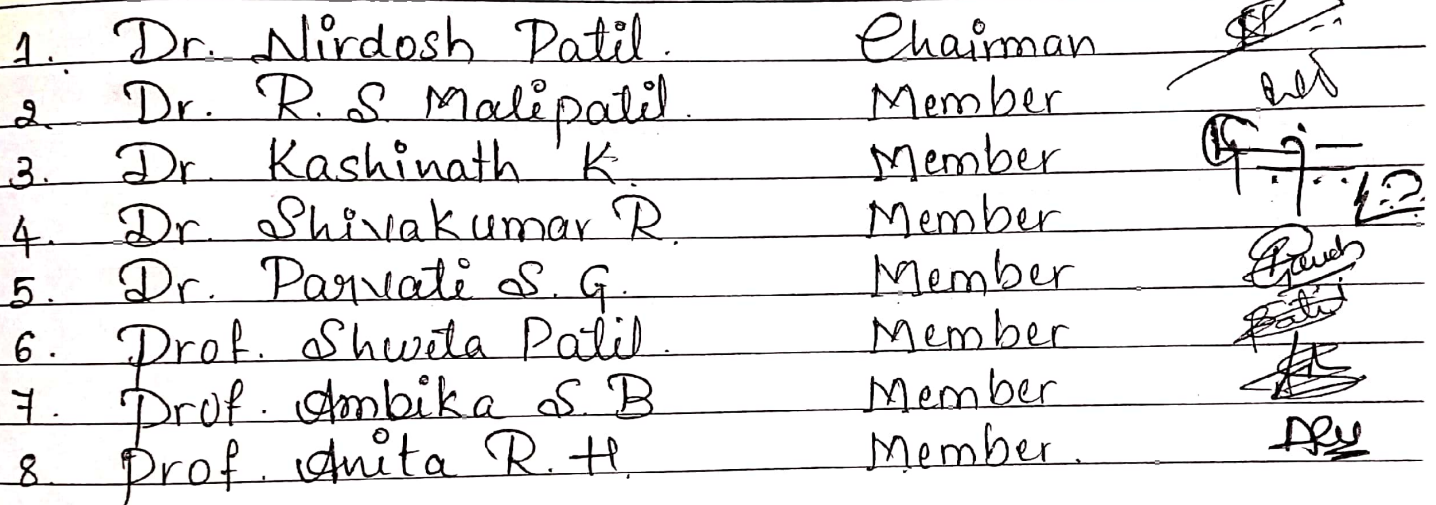 1. Dr. Nirdosh Patil. Chairman
2 Dr. R. S Malipatil. Member
3. Dr. Kashinath K. Member
4. Dr. Shivakumar R. Member
5. Dr. Parvati S. G. Member
6. Prof. Shweta Patil. Member
7. Prof. Ambika S. B Member
8. Prof. Anita R. H. Member.